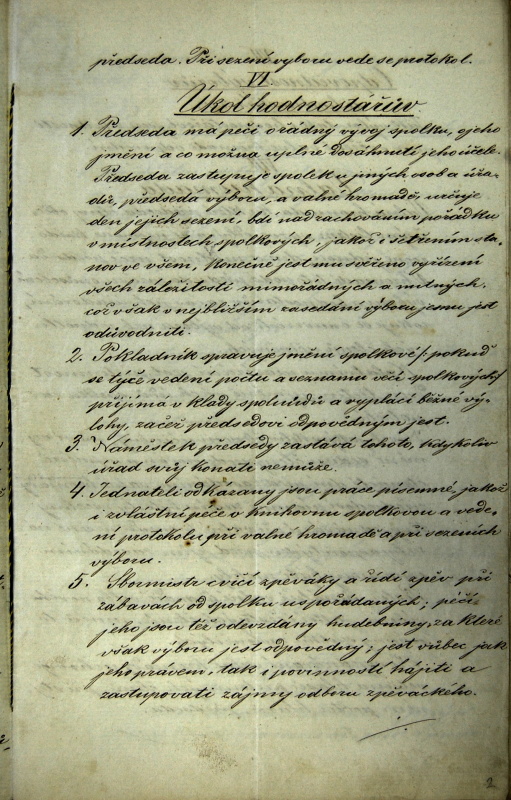 předseda. Při sezení výboru vede se protokol.
VI
Úkol hodnostářův
1. Předseda má péči o řádný vývoj spolku, o jeho
jmění a co možna uplné dosáhnutí jeho účele.
Předseda zastupuje spolek u jiných osob a úřa-
dů, předsedá výboru, a valné hromadě, určuje
den jejich sezení. bdí nad zachováním pořádku
v místnostech spolkových, jakož i šetřením sta-
nov ve všem, konečně jest mu svěřeno vyřízení
všech záležitostí mimořádných a nutných.
což však v nejbližším zasedání výboru jemu jest
odůvodniti.
2. Pokladník spravuje jmění spolkové /: pokud
se týče vedení počtu a seznamu věcí spolkových :/
přijímá v klady spolu údů a vyplácí běžné vý-
lohy, začež předsedovi odpovědným jest.
3. Náměstek předsedy zastává tohoto, kdykoliv
úřad svůj konati nemůže.
4. Jednateli odkázany jsou práce písemné, jakož
i zvláštní péče o knihovnu spolkovou a vede-
ní protokolu při valné hromadě a při sezeních
výboru.
5. Sbormistr cvičí zpěváky a řídí zpěv při
zábavách od spolku uspořádaných; péči
jeho jsou též odevzdány hudebniny, za které
však výboru jest odpovědný; jest vůbec jak
jeho právem, tak i povinností hájiti a
zastupovati zájmy odboru zpěváckého.
2